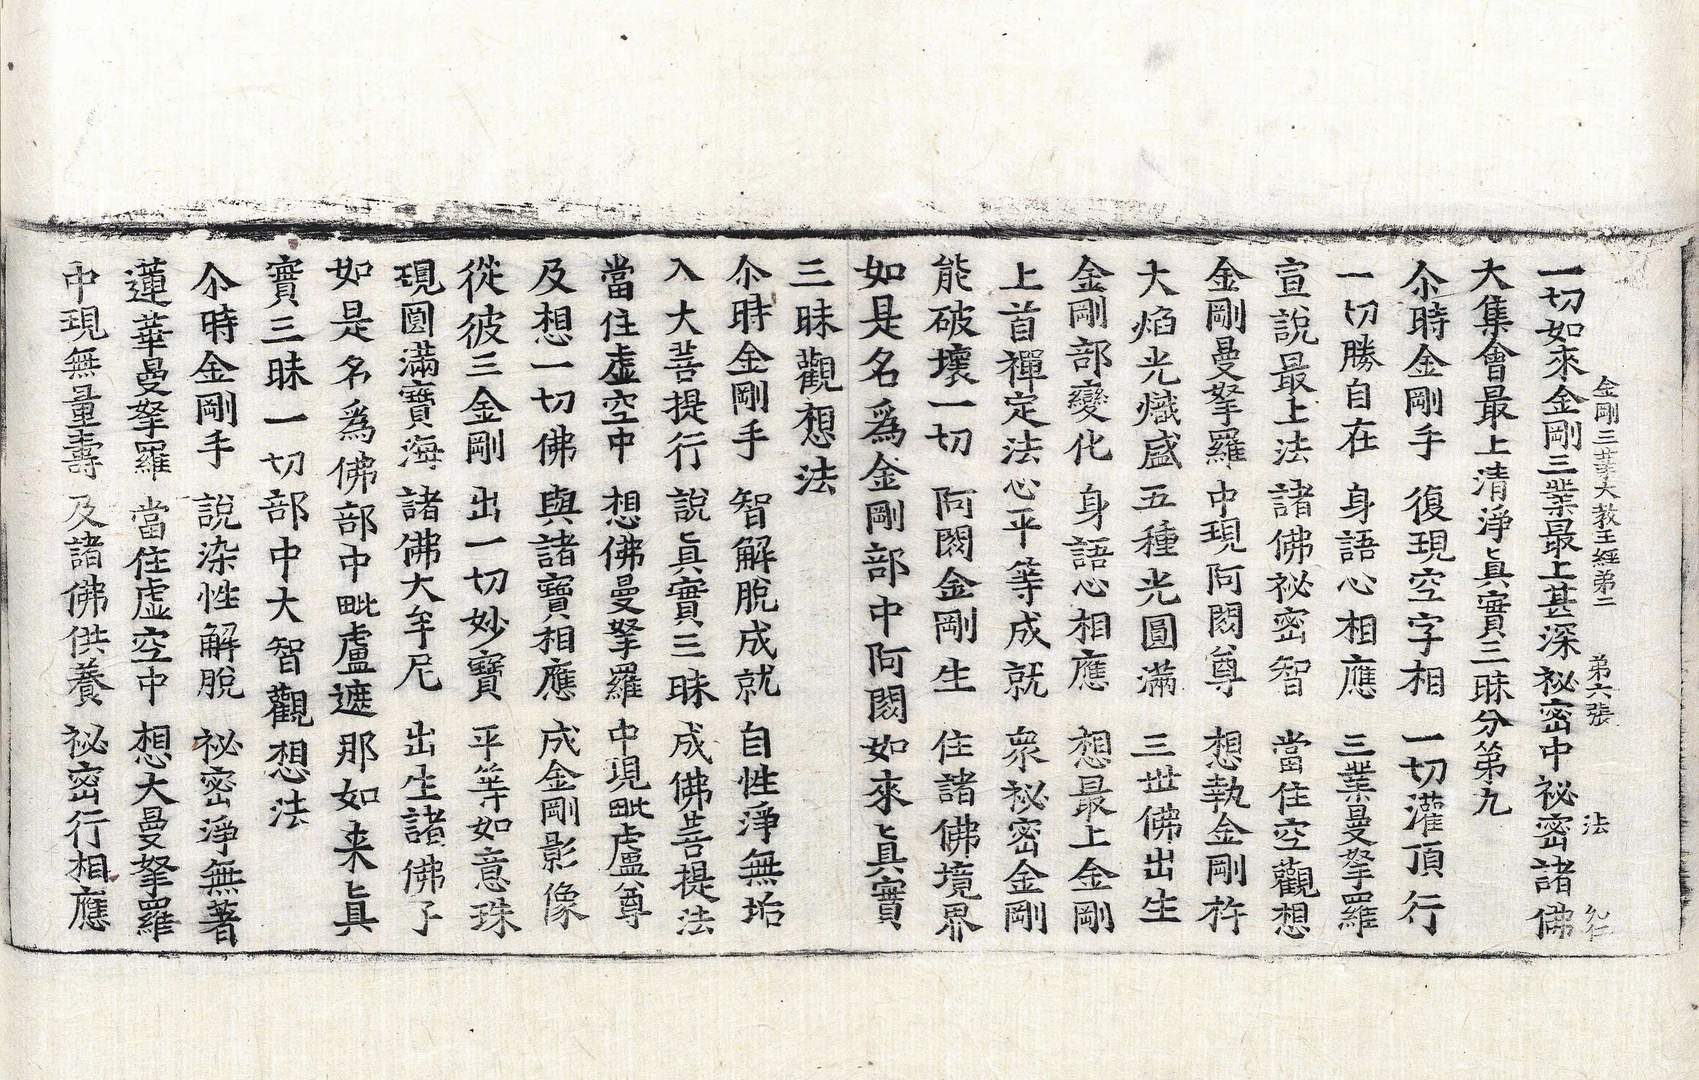 一切如來金剛三業最上甚深祕密中祕密諸佛
金剛三業大教王經第二 第六張 法
大集會最上清淨眞實三昧分第九
尒時金剛手 復現空字相 一切灌頂行
一切勝自在 身語心相應 三業曼拏羅
宣說最上法 諸佛祕密智 當住空觀想
金剛曼拏羅 中現阿閦尊 想執金剛杵
大焰光熾盛 五種光圓滿 三世佛出生
金剛部變化 身語心相應 想最上金剛
上首禪定法 心平等成就 衆祕密金剛
能破壞一切 阿閦金剛生 住諸佛境界
如是名爲金剛部中阿閦如來眞實
三昧觀想法
尒時金剛手 智解脫成就 自性淨無垢
入大菩提行 說眞實三昧 成佛菩提法
當住虛空中 想佛曼拏羅 中現毗盧尊
及想一切佛 與諸寶相應 成金剛影像
從彼三金剛 出一切妙寶 平等如意珠
現圓滿寶海 諸佛大牟尼 出生諸佛子
如是名爲佛部中毗盧遮那如来眞
實三昧一切部中大智觀想法
尒時金剛手 說染性解脫 祕密淨無著
蓮華曼拏羅 當住虛空中 想大曼拏羅
中現無量壽 及諸佛供養 祕密行相應